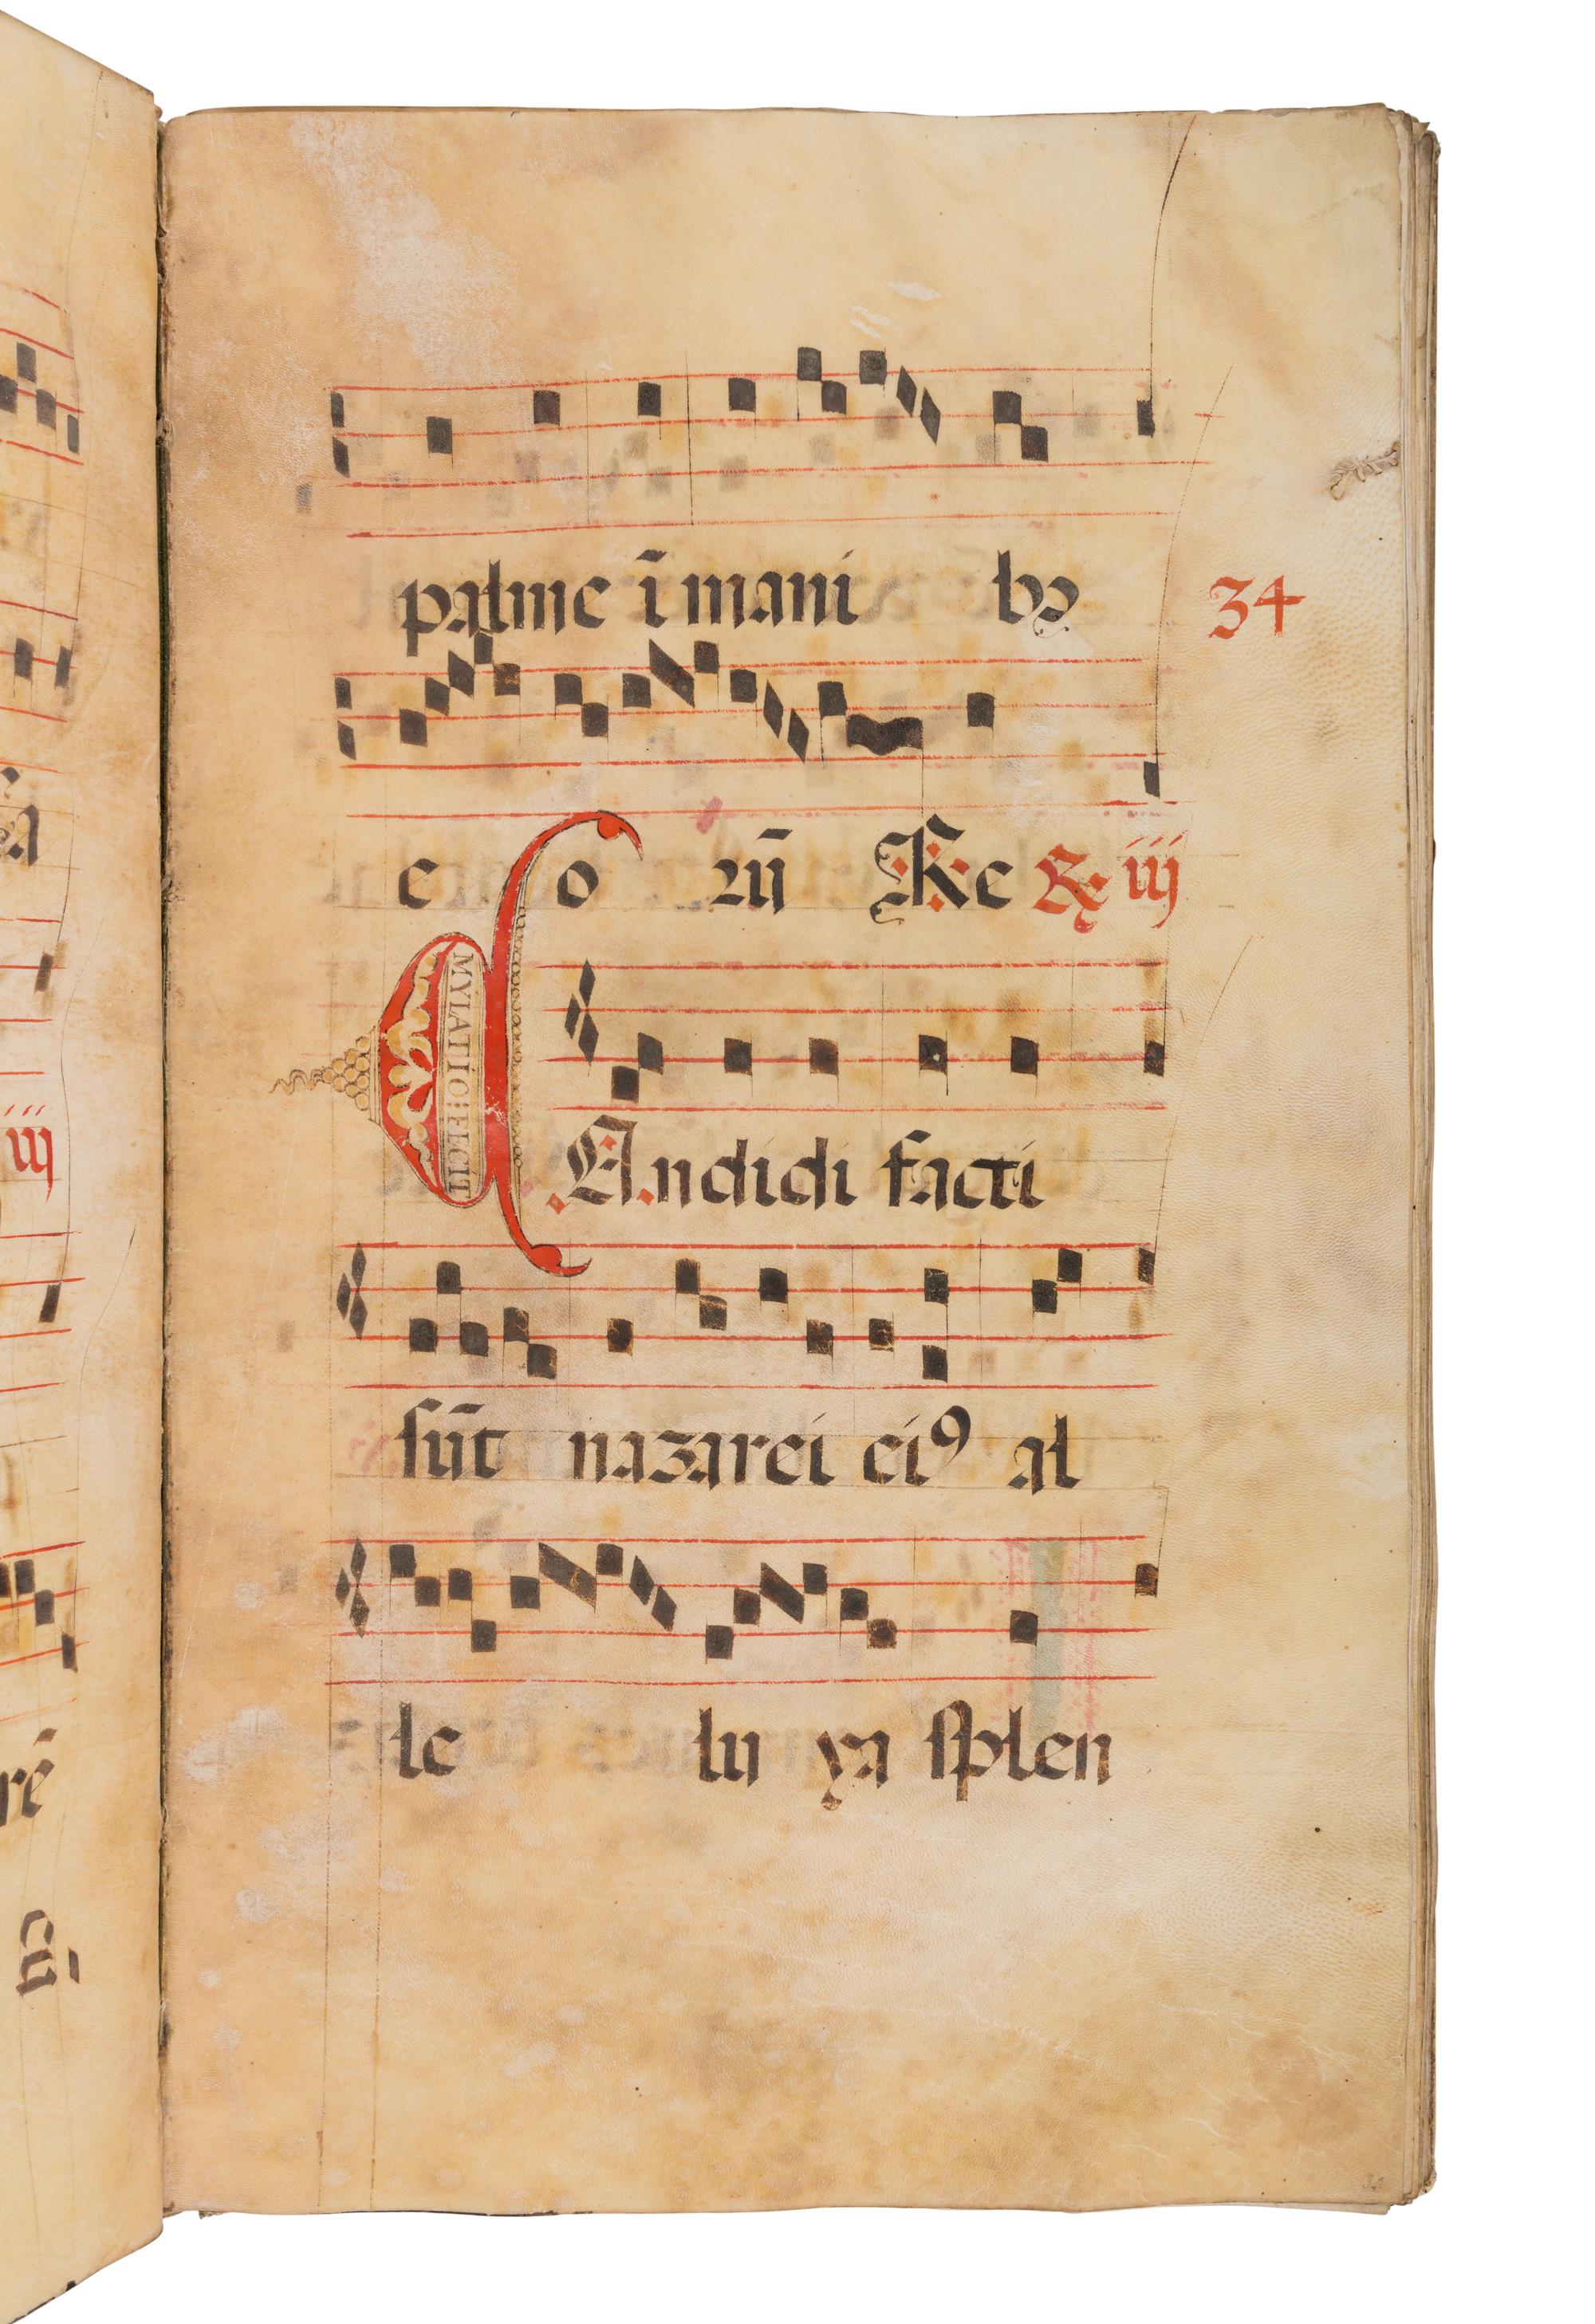 palme ī mani bꝫ
34
e o rū Ke ℟ iiij
MYLATIO:FECIT
CAndidi facti
sūt nazarei eiꝰ al
le lu ya splen
iiij
rē
cū